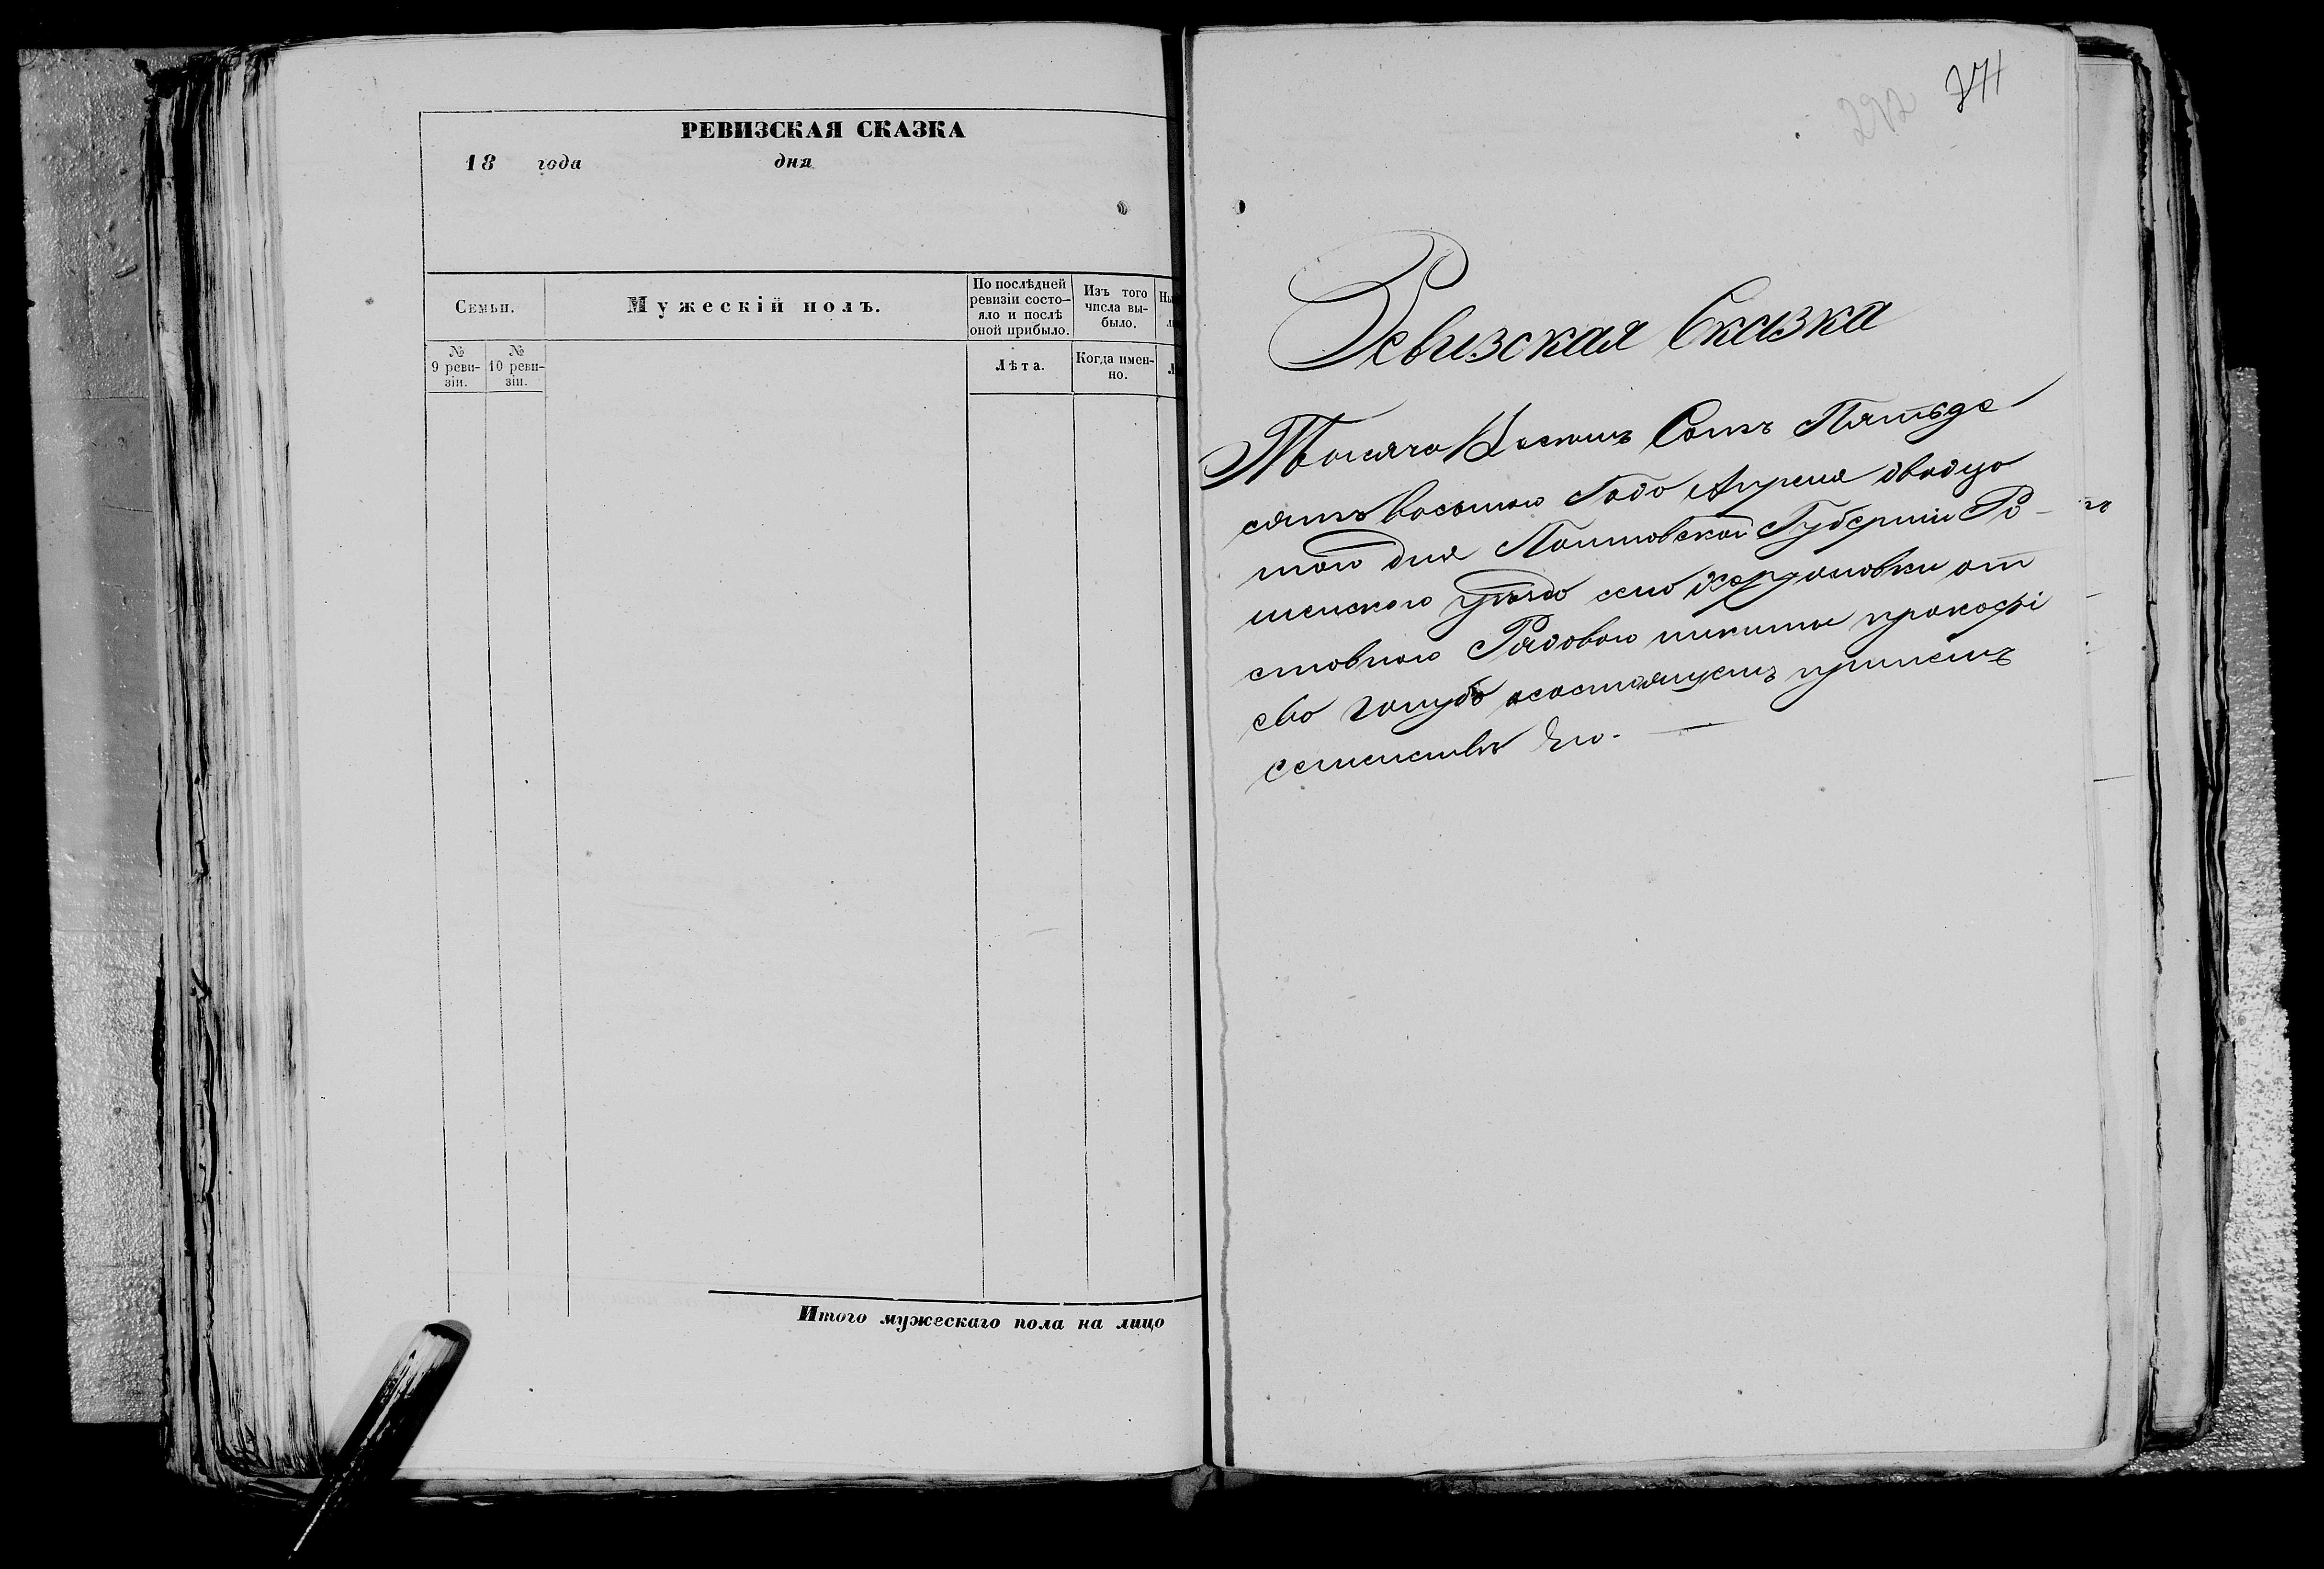 РЕВИЗСКАЯ СКАЗКА
18 года дня
Семьи.
Мужескій полъ.
По послѣдней
ревизіи состо-
яло и послѣ
оной прибыло.
Изъ того
числа вы-
было.
№
9 реви-
зіи.
№
10 реви-
зіи.
Лѣта.
Когда имен-
но.
Итого мужескаго пола на лицо
292
Ревизская Сказка
Тысяча Восемь Сотъ Пятьде
сятъ восьмого Года Апреля двадца
того дня Полтовской Губерніи Ро-
менского уѣзда села от
ставного Рядового никиты прокофі
ева голуба осостоящемъ принемъ
семействѣ Его.